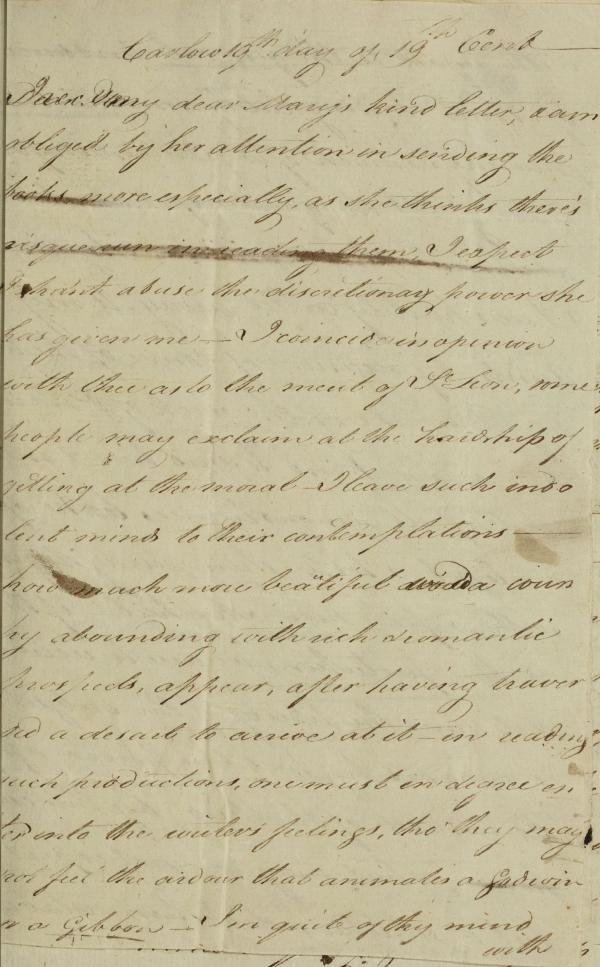 Carlow 19th day of, 19th Cent
my dear Mary's kind letter, I am
obliged by her attention in sending the
books more especially, as she thinks there's
risque run in reading them, I expect
I shant abuse the discretionary power she
has given me — I coincide in opinion
with thee as to the merit of St Leon, some
people may exclaim at the hardship of
getting at the moral — I leave such indo
lent minds to their contemplations —
how much more beautiful a coun
try abounding with rich & romantic
prospects, appear, after having traver
sed a desart to arrive at it — in reading
such productions, one must in degree en
ter into the writer's feelings, tho' they may
not feel the ardour that animates a Godwin
or a Gibbon — I'm quite of thy mind
with